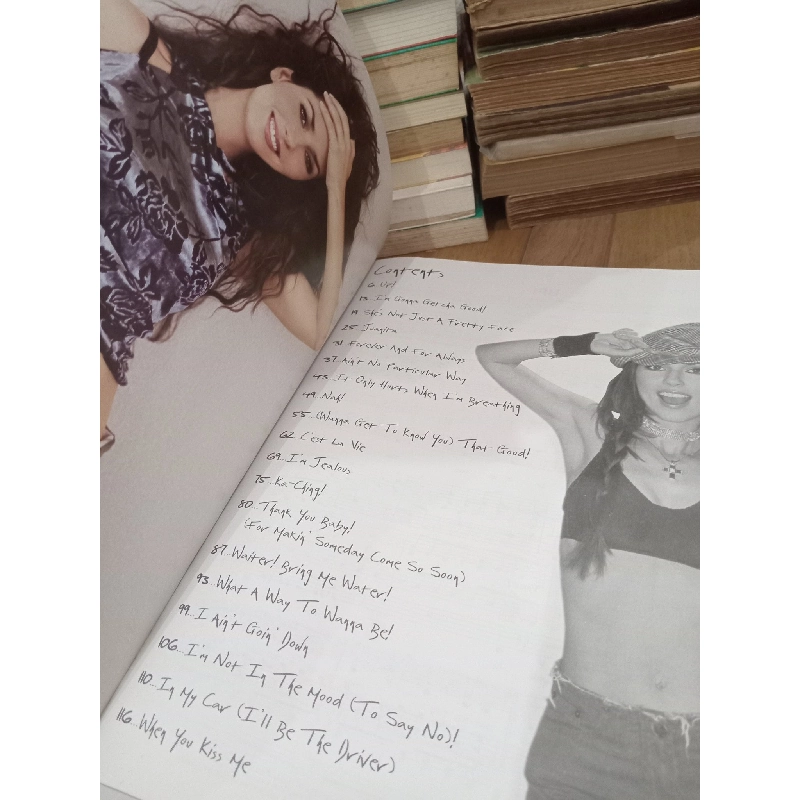 Contents
6 Up!
13...I'm Gonna Getcha Good!
19 She's Not Just A Pretty Face
25 Juanita
31 Forever And For Always
37...Ain't No Particular Way
43...It Only Hurts When I'm Breathing
49...Nah!
55...(Wanna Get To Know You) That Good!
62 C'est La Vie
69...I'm Jealous
75...Ka-Ching!
80...Thank You Baby!
(For Makin' Someday Come So Soon)
87...Waiter! Bring Me Water!
93...What A Way To Wanna Be!
99...I Ain't Goin' Down
106...I'm Not In The Mood (To Say No)!
110...In My Car (I'll Be The Driver)
116...When You Kiss Me